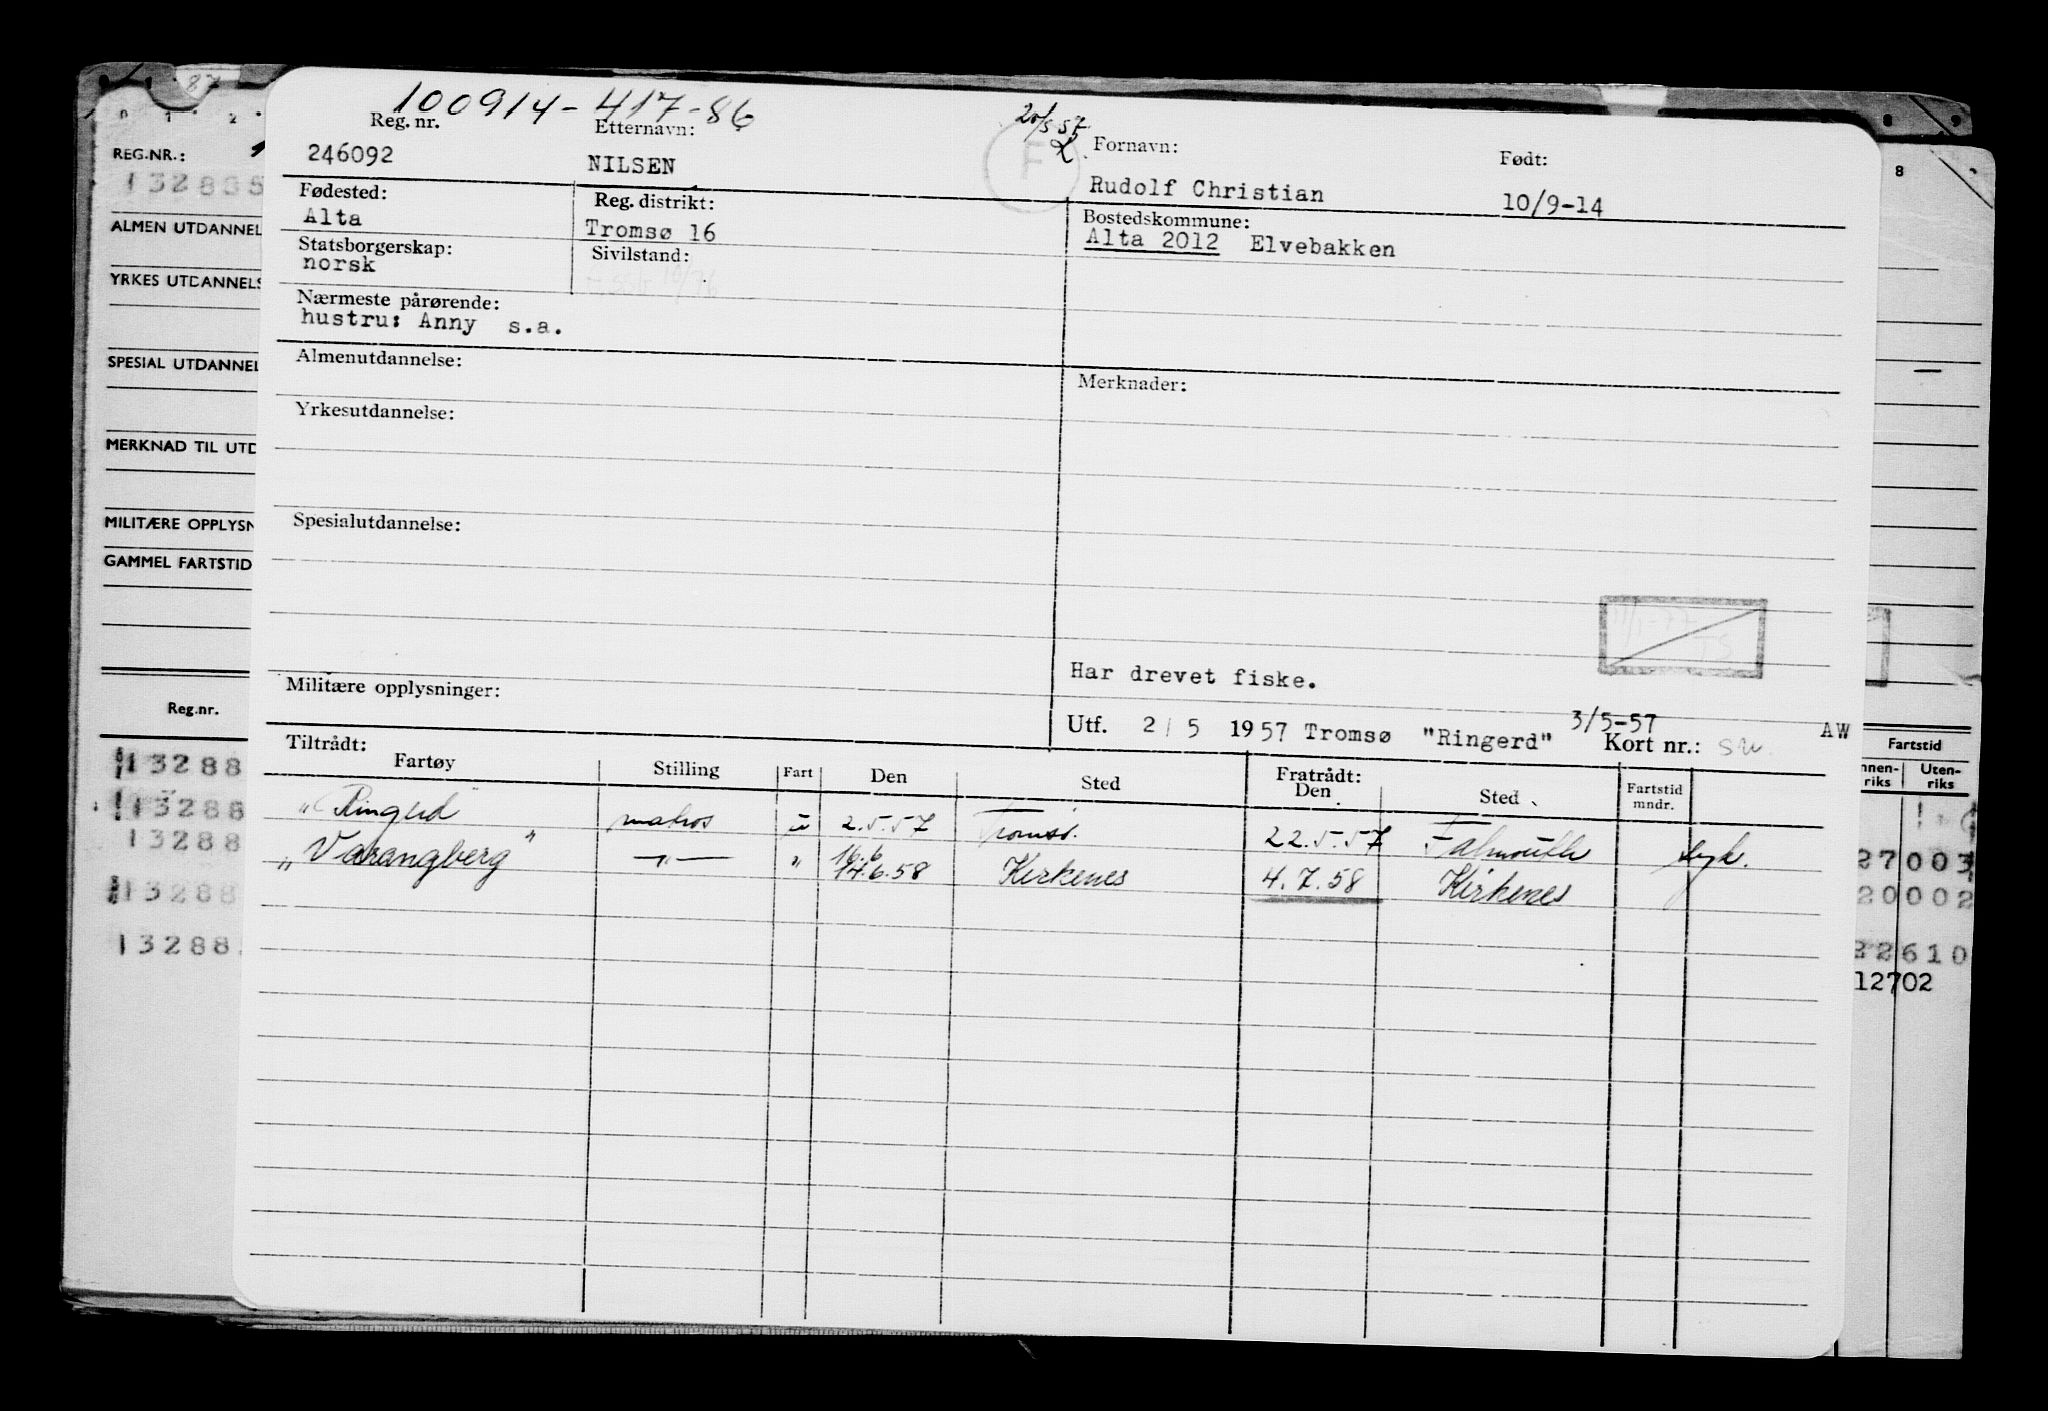 87
0 1 2
8 9
REG.NR.:
132835
ALMEN UTDANNEL
YRKES UTDANNELS
SPESIAL UTDANNEL
MERKNAD TIL UTD
MILITÆRE OPPLYSN
GAMMEL FARTSTID
Reg.nr.
13288
13288
13288
13288
13288
100914-417-86
20/5 57
Reg. nr. Etternavn: Fornavn: Født:
246092 NILSEN F Rudolf Christian 10/9-14
Fødested: Reg. distrikt: Bostedskommune:
Alta Tromsø 16 Alta 2012 Elvebakken
Statsborgerskap: Sivilstand:
norsk
Nærmeste pårørende:
hustru: Anny s.a.
Almenutdannelse: Merknader:
Yrkesutdannelse:
Spesialutdannelse:
11/1-77
TS
Har drevet fiske.
Militære opplysninger:
Utf. 2/5 1957 Tromsø "Ringerd" 3/5-57 Kort nr.: AW
Tiltrådt: Fratrådt:
Fartøy Stilling Fart Den Sted Den Sted Fartstid mndr.
"Ringerd" matros u 2.5.57 Tromsø. 22.5.57 Falmouth syk.
"Varangberg" —"— " 14.6.58 Kirkenes 4.7.58 Kirkenes
8
Fartstid
nnen-riks Uten-riks
27003
20002
22610
12702